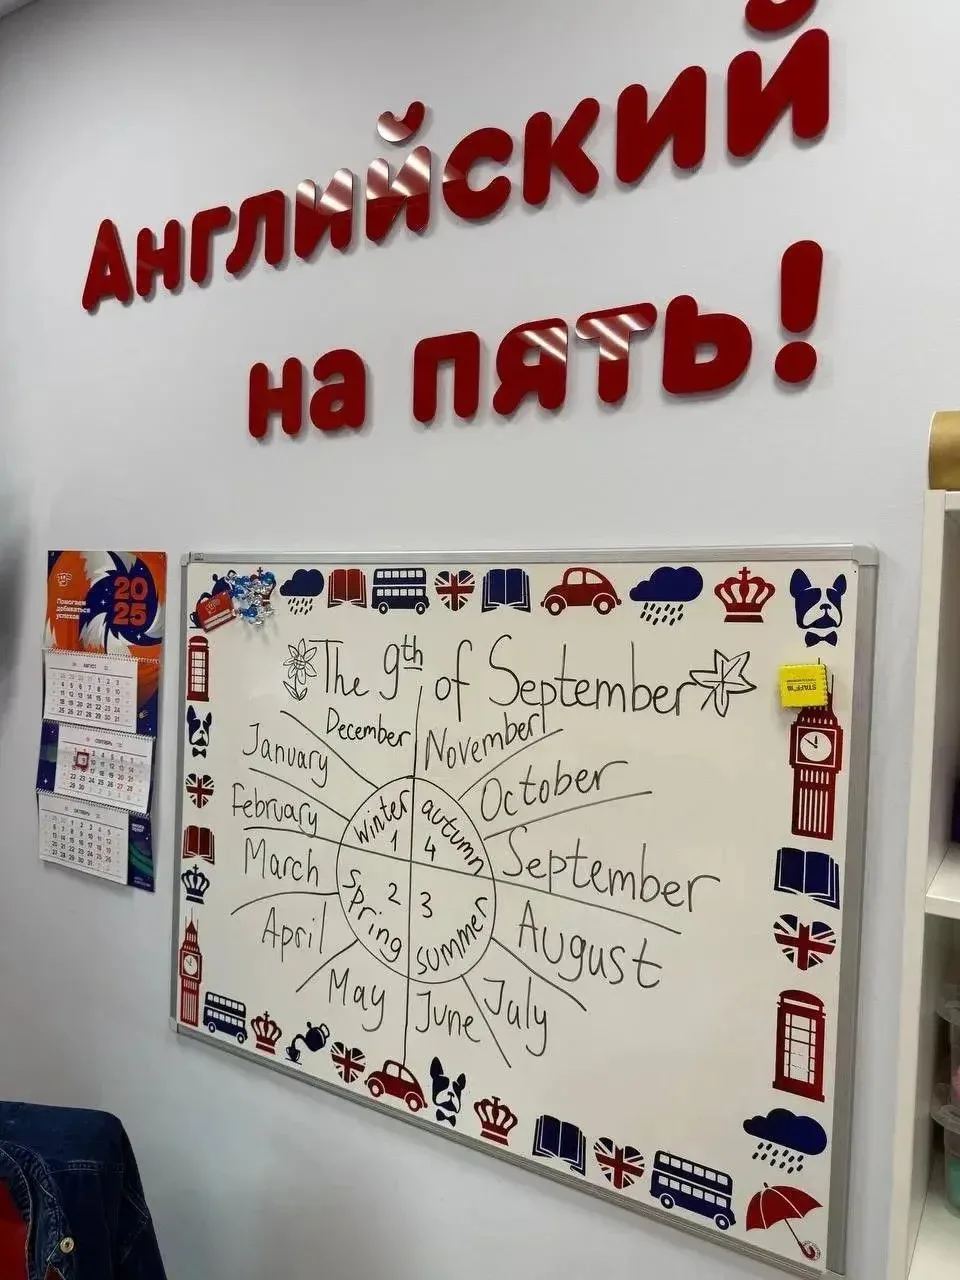 Английский
на пять!
20
25
Помогаем
добиваться
успехов
АВГУСТ
СЕНТЯБРЬ
ОКТЯБРЬ
The 9th of September
December
November
January
October
February
September
March
August
April
July
May
June
winter
1
autumn
4
spring
2
3
summer
STAFF